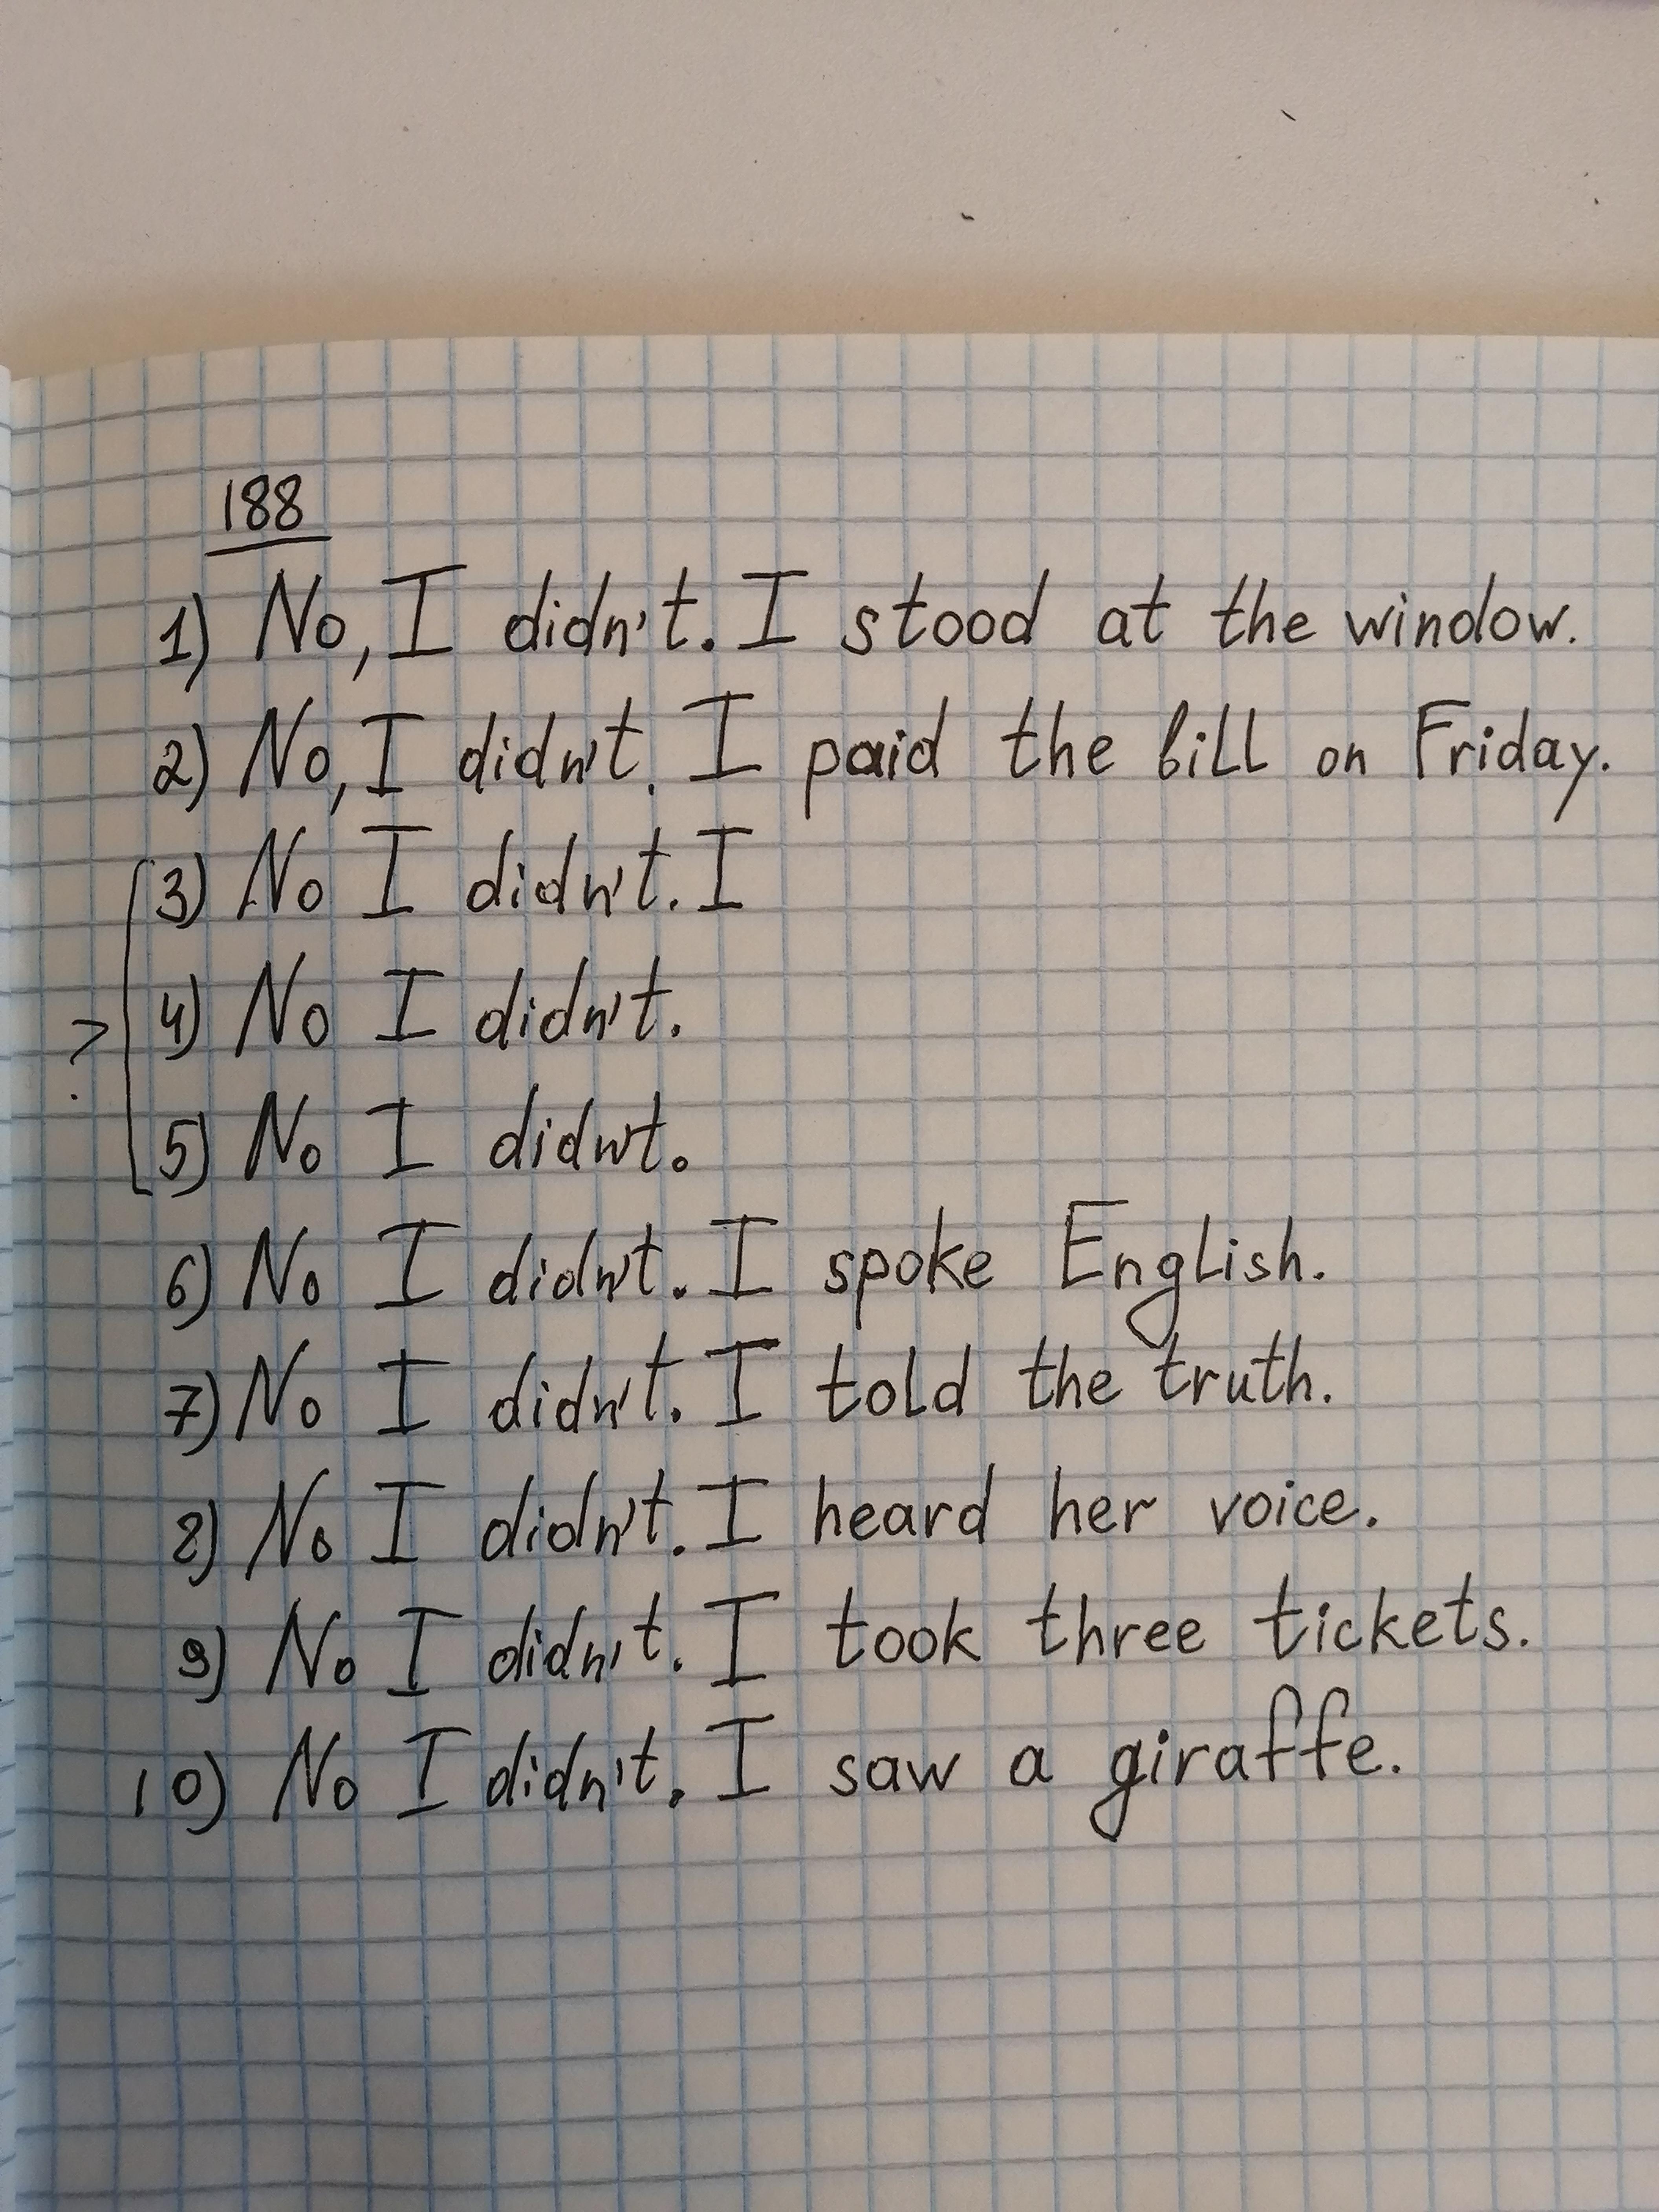 188
1) No, I didn't. I stood at the window.
2) No, I didn't. I paid the bill on Friday.
3) No I didn't. I
4) No I didn't.
?
5) No I didn't.
6) No I didn't. I spoke English.
7) No I didn't. I told the truth.
8) No I didn't. I heard her voice.
9) No I didn't. I took three tickets.
10) No I didn't. I saw a giraffe.